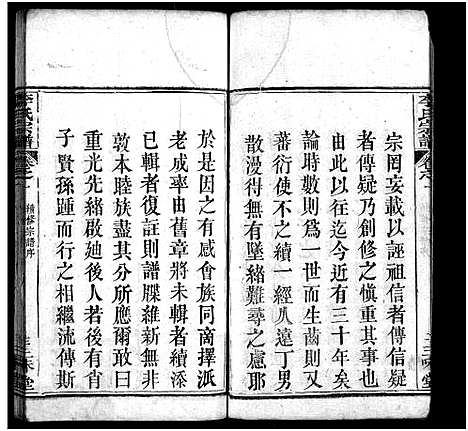 宗罔妄載以誣祖信者傳信疑
者傳疑乃創修之愼重其事也
自此以往迄今近有三十年矣
論時數則爲一世而生齒則
蕃衍倘不之續一經人遠丁男
散漫得無有墜緒難尋之慮耶
於是先君由有感會族同商擇派
老成率由舊章將未輯者續添
已輯者復註則譜牒維新無非
敦本睦族盡其分所應爾而有
重光先緒啟廸後人若後有肖
子賢孫踵而行之相繼流傳斯
李氏宗譜
卷之一
續修宗譜序
李氏宗譜
卷之一